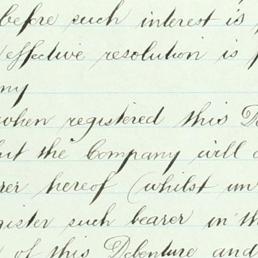 before such interest is
effective resolution is
ny
when registered this De
but the Company will
rer hereof (whilst un
gister such bearer in th
of this Debenture and